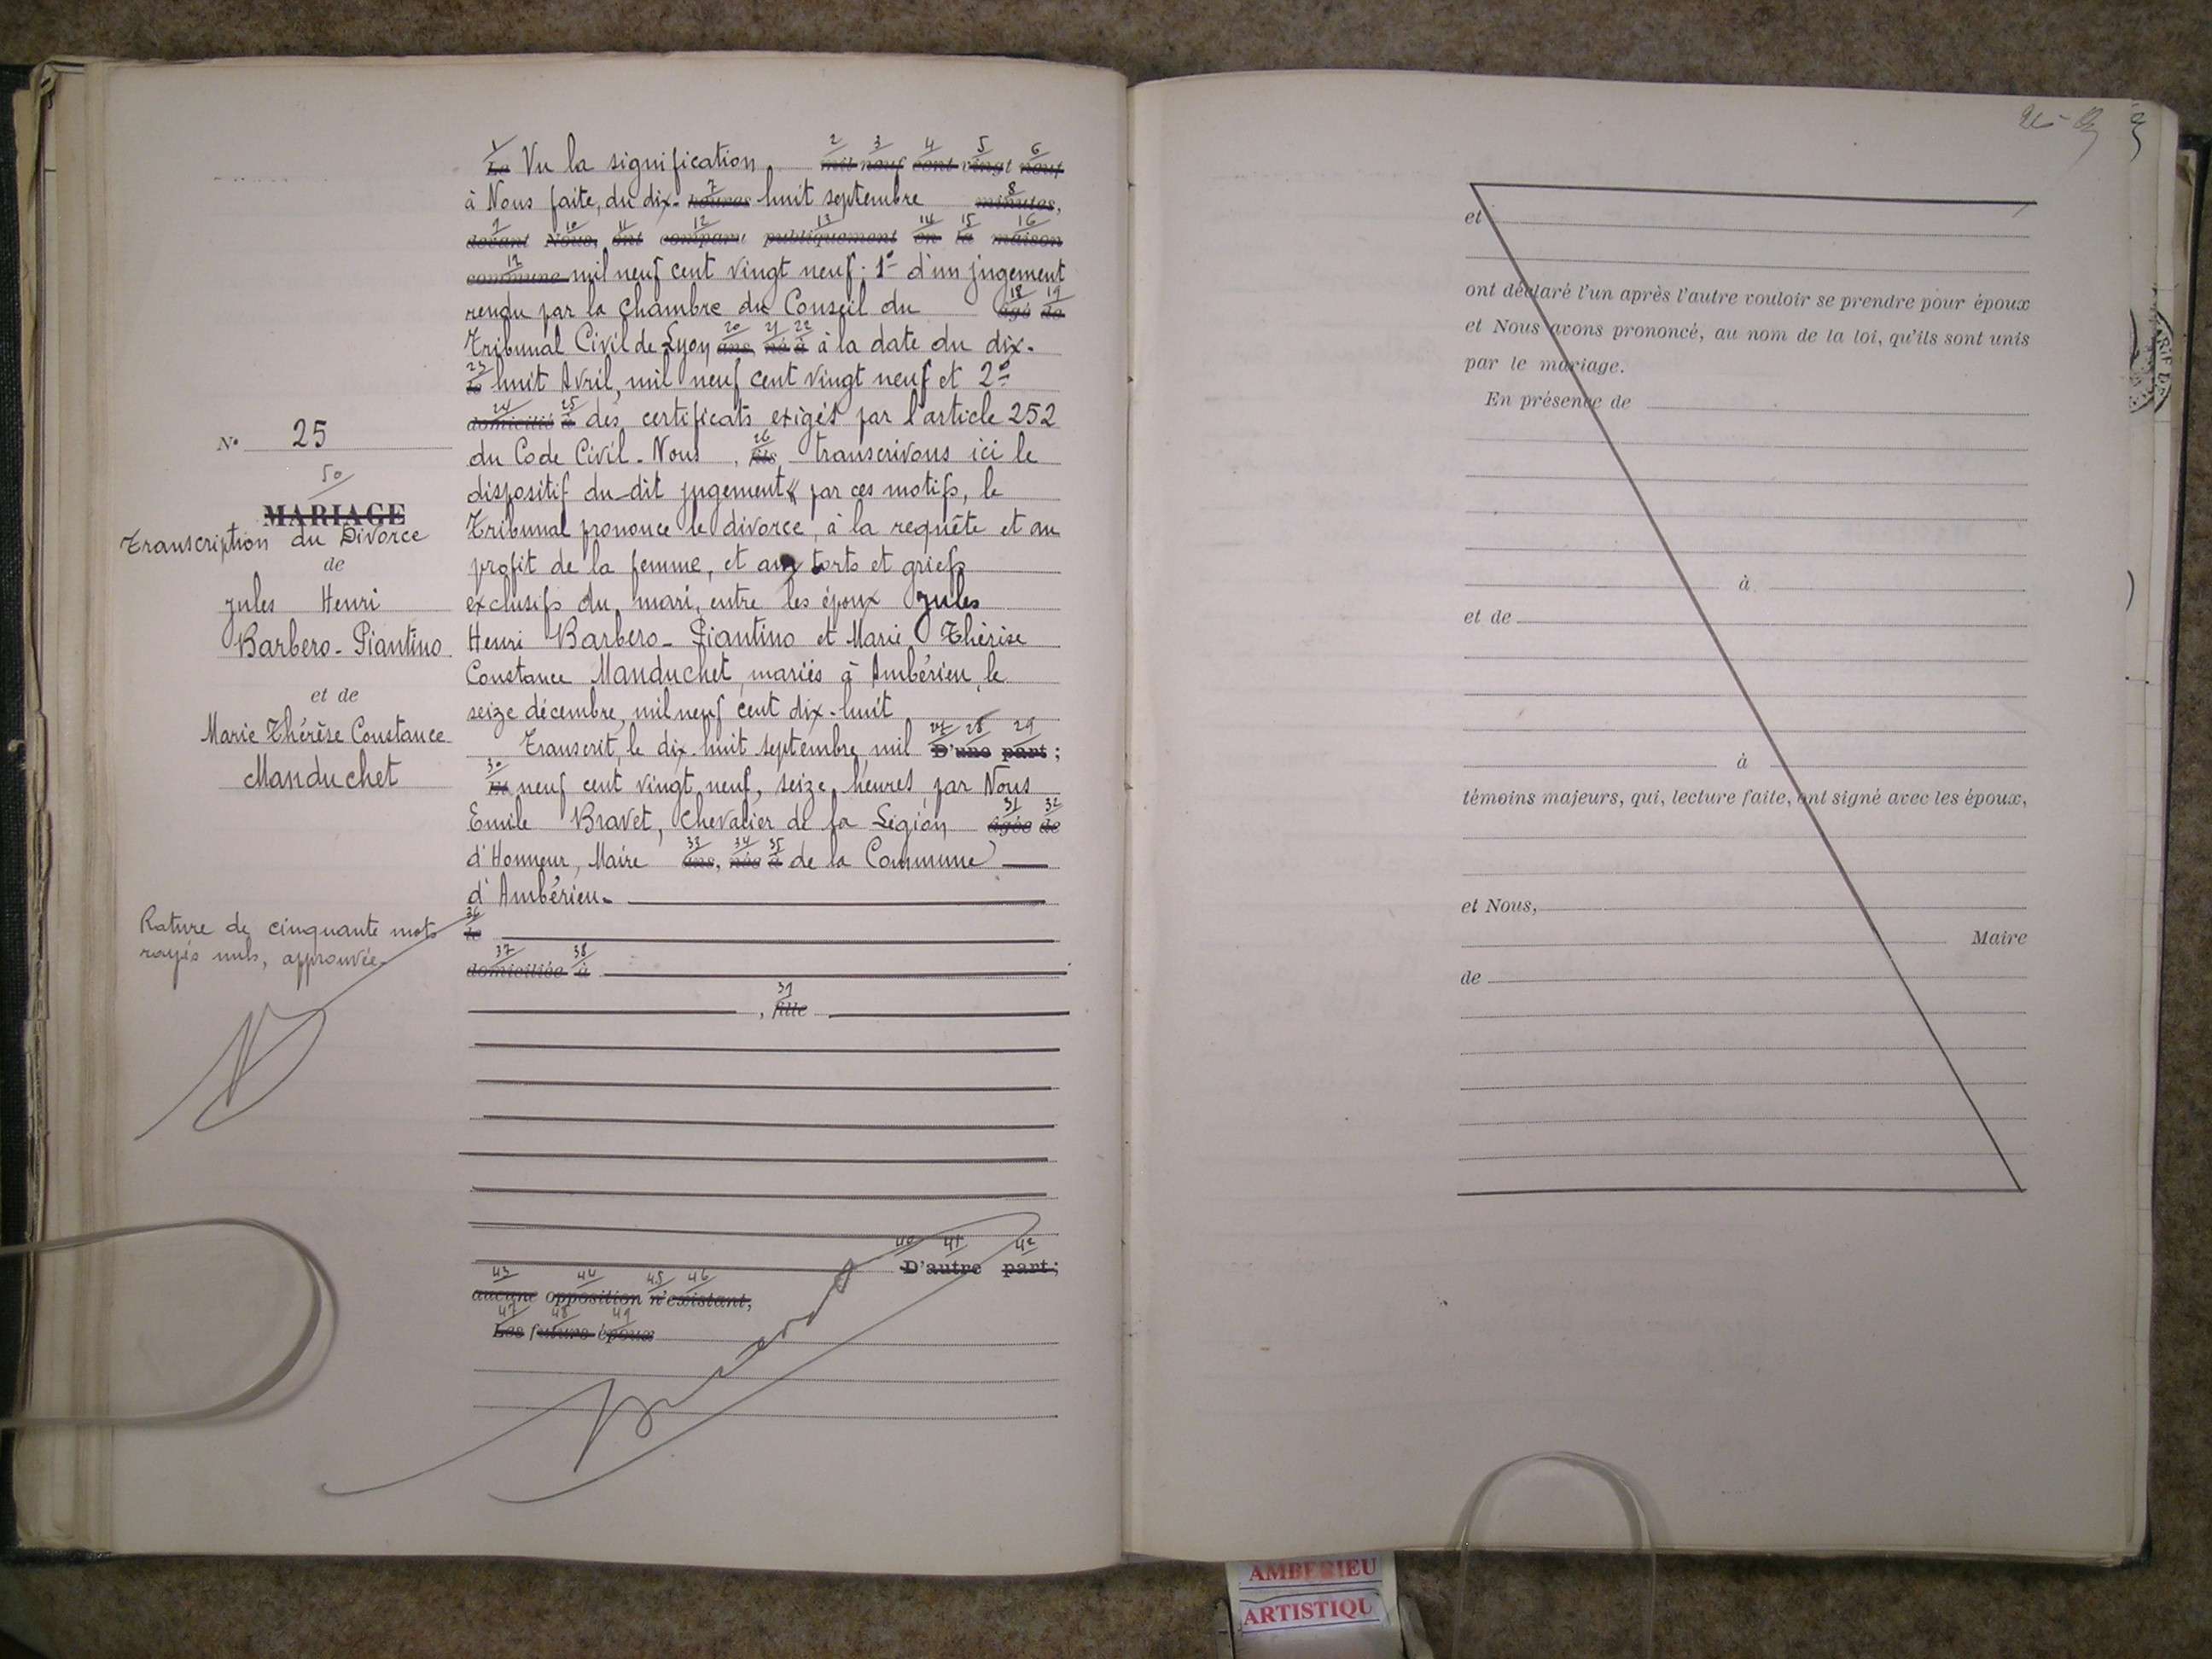 1 Le Vu la signification 2 mil 3 neuf 4 cent 5 vingt 6 neuf
à Nous faite, du dix- 7 heures huit septembre 8 minutes,
9 devant 10 Nous, 11 ont 12 comparu 13 publiquement 14 en 15 la 16 maison
17 commune mil neuf cent vingt neuf : 1° d'un jugement
rendu par la Chambre du Conseil du 18 âgé 19 de
Tribunal Civil de Lyon 20 ans, 21 né 22 à à la date du dix-
23 le huit Avril, mil neuf cent vingt neuf et 2°
24 domicilié 25 à des certificats exigés par l'article 252
du Code Civil. Nous, 26 fils, transcrivons ici le
dispositif du dit jugement « par ces motifs, le
Tribunal prononce le divorce, à la requête et au
profit de la femme, et aux torts et griefs
exclusifs du mari, entre les époux Jules
Henri Barbero-Piantino et Marie Thérèse
Constance Manduchet, mariés à Ambérieu, le
seize décembre, mil neuf cent dix-huit
Transcrit, le dix-huit septembre, mil 27 D' 28 une 29 part ;
30 Et neuf cent vingt neuf, seize heures, par Nous
Emile Bravet, Chevalier de la Légion 31 âgée 32 de
d'Honneur, Maire 33 ans, 34 née 35 à de la Commune
d'Ambérieu.
36 le
37 domiciliée 38 à
, 39 fille
40 D' 41 autre 42 part ;
43 aucune 44 opposition 45 n' 46 existant,
47 Les 48 futurs 49 époux
N° 25
50
MARIAGE
Transcription du Divorce
de
Jules Henri
Barbero-Piantino
et de
Marie Thérèse Constance
Manduchet
Rature de cinquante mots
rayés nuls, approuvée.
et
ont déclaré l'un après l'autre vouloir se prendre pour époux
et Nous avons prononcé, au nom de la loi, qu'ils sont unis
par le mariage.
En présence de
à
et de
à
témoins majeurs, qui, lecture faite, ont signé avec les époux,
et Nous,
Maire
de
AMBERIEU
ARTISTIQU